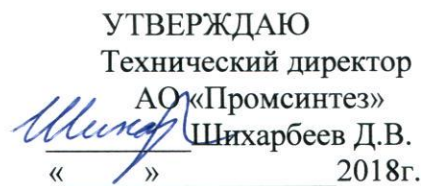 УТВЕРЖДАЮ
Технический директор
АО «Промсинтез»
Шихарбеев Д.В.
« » 2018г.